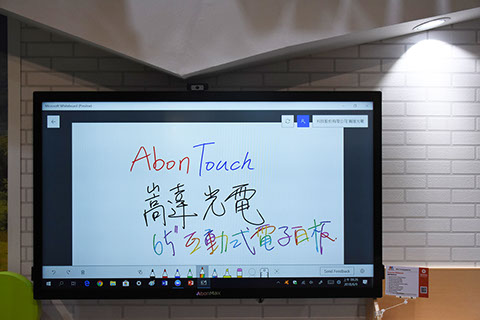 Microsoft Whiteboard (Preview)
Abon Touch
嵩達光電
65"互動式電子白板
Send Feedback
AbonMax